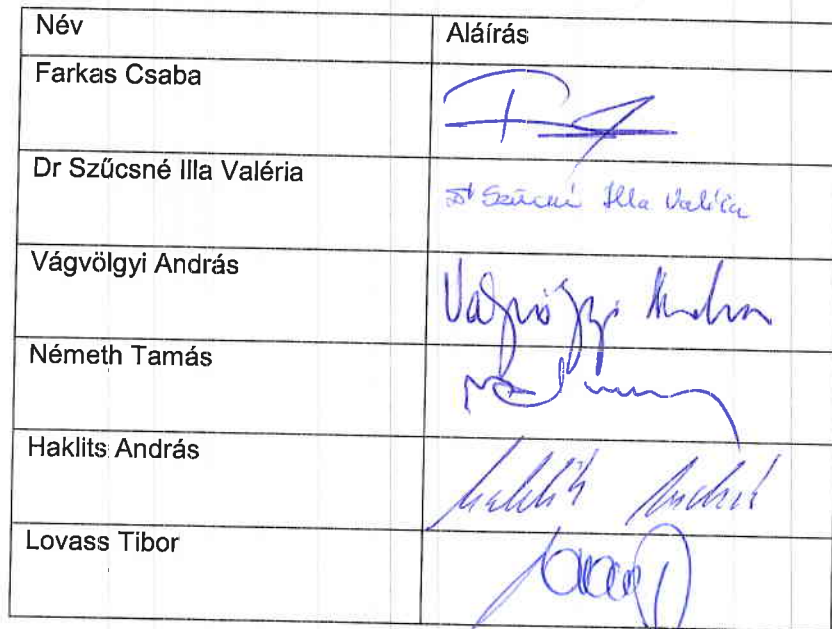 Név Aláírás
Farkas Csaba
Dr Szűcsné Illa Valéria
Dr Szűcsné Illa Valéria
Vágvölgyi András
Vágvölgyi András
Németh Tamás
Haklits András
Haklits András
Lovass Tibor